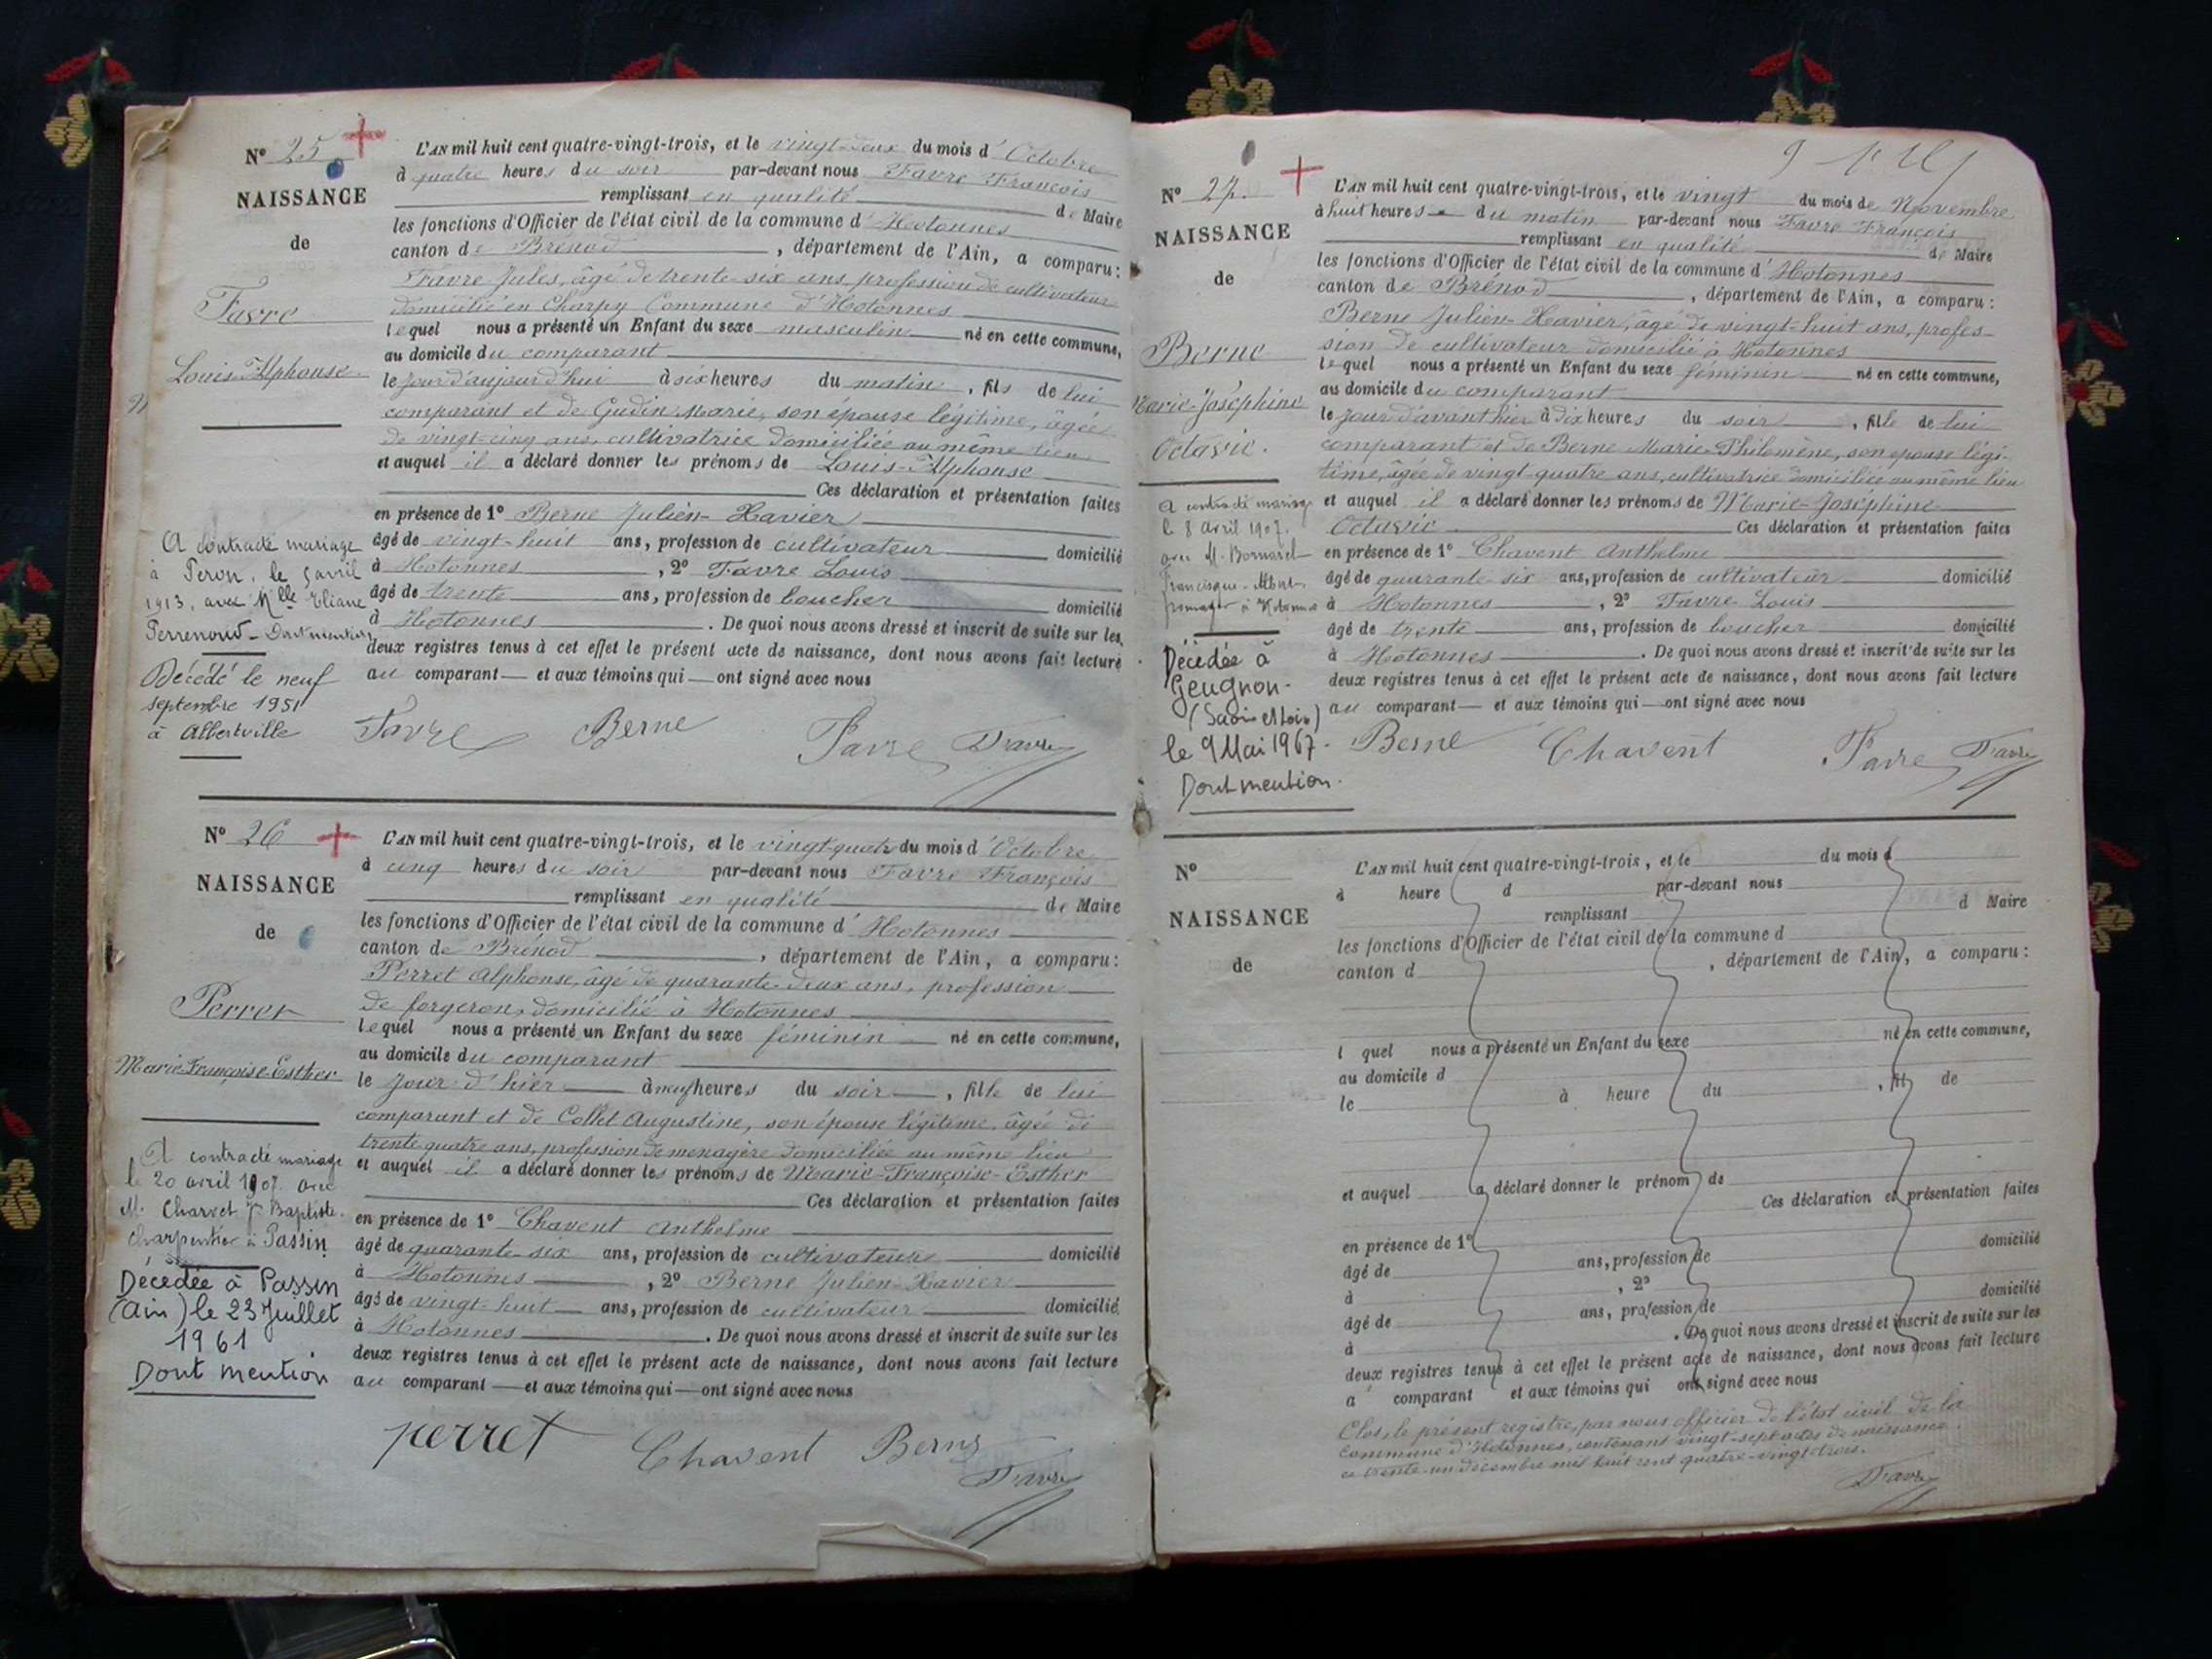 Nº 25
NAISSANCE
de
Favre
Louis-Alphonse
A contracté mariage
à Peron, le 5 avril
1913, avec Mlle Eliane
Perrenoud - Dont mention
Décédé le neuf
septembre 1951
à Albertville
L'AN mil huit cent quatre-vingt-trois, et le vingt-deux du mois d'Octobre
à quatre heures du soir par-devant nous Favre François
remplissant en qualité de Maire
les fonctions d'Officier de l'état civil de la commune d'Hotonnes
canton de Brénod, département de l'Ain, a comparu:
Favre Jules, âgé de trente-six ans, profession de cultivateur
domicilié en Charpy Commune d'Hotonnes
lequel nous a présenté un Enfant du sexe masculin né en cette commune,
au domicile du comparant
le jour d'aujourd'hui à six heures du matin, fils de lui
comparant et de Gudin Marie, son épouse légitime, âgée
de vingt-cinq ans, cultivatrice domiciliée au même lieu
et auquel il a déclaré donner les prénoms de Louis-Alphonse
Ces déclaration et présentation faites
en présence de 1º Berne Julien-Xavier
âgé de vingt-huit ans, profession de cultivateur domicilié
à Hotonnes, 2º Favre Louis
âgé de trente ans, profession de boucher domicilié
à Hotonnes. De quoi nous avons dressé et inscrit de suite sur les
deux registres tenus à cet effet le présent acte de naissance, dont nous avons fait lecture
au comparant et aux témoins qui ont signé avec nous
Favre Berne Favre Favre
Nº 26
NAISSANCE
de
Perret
Marie-Françoise-Esther
A contracté mariage
le 20 avril 1907 avec
M. Charvet J. Baptiste
charpentier à Passin
Décédée à Passin
(Ain) le 23 Juillet
1961
Dont mention
L'AN mil huit cent quatre-vingt-trois, et le vingt-quatre du mois d'Octobre
à cinq heures du soir par-devant nous Favre François
remplissant en qualité de Maire
les fonctions d'Officier de l'état civil de la commune d'Hotonnes
canton de Brénod, département de l'Ain, a comparu:
Perret Alphonse, âgé de quarante-deux ans, profession
de forgeron, domicilié à Hotonnes
lequel nous a présenté un Enfant du sexe féminin né en cette commune,
au domicile du comparant
le jour d'hier à neuf heures du soir, fille de lui
comparant et de Collet Augustine, son épouse légitime, âgée de
trente quatre ans, profession de menagère domiciliée au même lieu
et auquel il a déclaré donner les prénoms de Marie-Françoise-Esther
Ces déclaration et présentation faites
en présence de 1º Chavent Anthelme
âgé de quarante-six ans, profession de cultivateur domicilié
à Hotonnes, 2º Berne Julien-Xavier
âgé de vingt-huit ans, profession de cultivateur domicilié
à Hotonnes. De quoi nous avons dressé et inscrit de suite sur les
deux registres tenus à cet effet le présent acte de naissance, dont nous avons fait lecture
au comparant et aux témoins qui ont signé avec nous
perret Chavent Berne
Favre
Nº 27.
NAISSANCE
de
Berne
Marie-Joséphine
Octavie.
A contracté mariage
le 8 avril 1907.
avec M. Bornarel
Francisque-Albert
fromager à Hotonnes
Décédée à
Geugnon-
(Saône et Loire)
le 9 Mai 1967-
Dont mention.
L'AN mil huit cent quatre-vingt-trois, et le vingt du mois de Novembre
à huit heures du matin par-devant nous Favre François
remplissant en qualité de Maire
les fonctions d'Officier de l'état civil de la commune d'Hotonnes
canton de Brénod, département de l'Ain, a comparu:
Berne Julien-Xavier, âgé de vingt-huit ans, profes-
sion de cultivateur domicilié à Hotonnes
lequel nous a présenté un Enfant du sexe féminin né en cette commune,
au domicile du comparant
le jour d'avant hier à dix heures du soir, fille de lui
comparant et de Berne Marie-Philomène, son épouse légi-
time, âgée de vingt-quatre ans, cultivatrice domiciliée au même lieu
et auquel il a déclaré donner les prénoms de Marie-Joséphine
Octavie Ces déclaration et présentation faites
en présence de 1º Chavent Anthelme
âgé de quarante-six ans, profession de cultivateur domicilié
à Hotonnes, 2º Favre Louis
âgé de trente ans, profession de boucher domicilié
à Hotonnes. De quoi nous avons dressé et inscrit de suite sur les
deux registres tenus à cet effet le présent acte de naissance, dont nous avons fait lecture
au comparant et aux témoins qui ont signé avec nous
Berne Chavent Favre Favre
Nº
NAISSANCE
de
L'AN mil huit cent quatre-vingt-trois, et le du mois d
à heure d par-devant nous
remplissant d Maire
les fonctions d'Officier de l'état civil de la commune d
canton d, département de l'Ain, a comparu:
l quel nous a présenté un Enfant du sexe né en cette commune,
au domicile d
le à heure du, fil de
et auquel a déclaré donner le prénom de
Ces déclaration et présentation faites
en présence de 1º
âgé de ans, profession de domicilié
à, 2º
âgé de ans, profession de domicilié
à. De quoi nous avons dressé et inscrit de suite sur les
deux registres tenus à cet effet le présent acte de naissance, dont nous avons fait lecture
a comparant et aux témoins qui ont signé avec nous
Clos, le présent registre, par nous officier de l'état civil de la
commune d'Hotonnes, contenant vingt-sept actes de naissance
ce trente-un décembre mil huit cent quatre-vingt-trois.
Favre